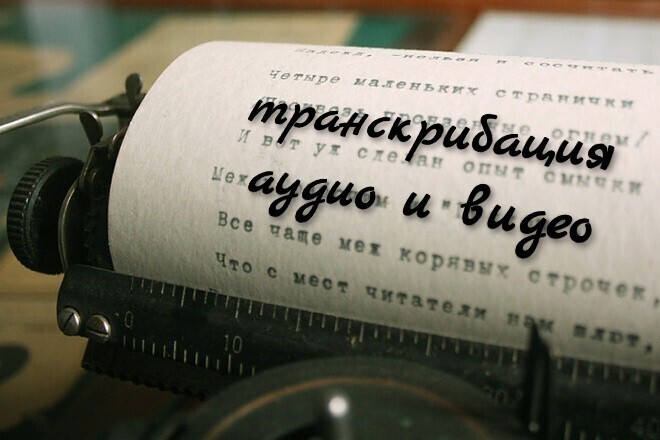 нельзя и сосчитать
Четыре маленьких странички
транскрибация
пронзенные огнем!
И вот уж сделан опыт смычки
аудио и видео
Все чаще меж корявых строчек,
Что с мест читатели нам шлют,
0 10 40